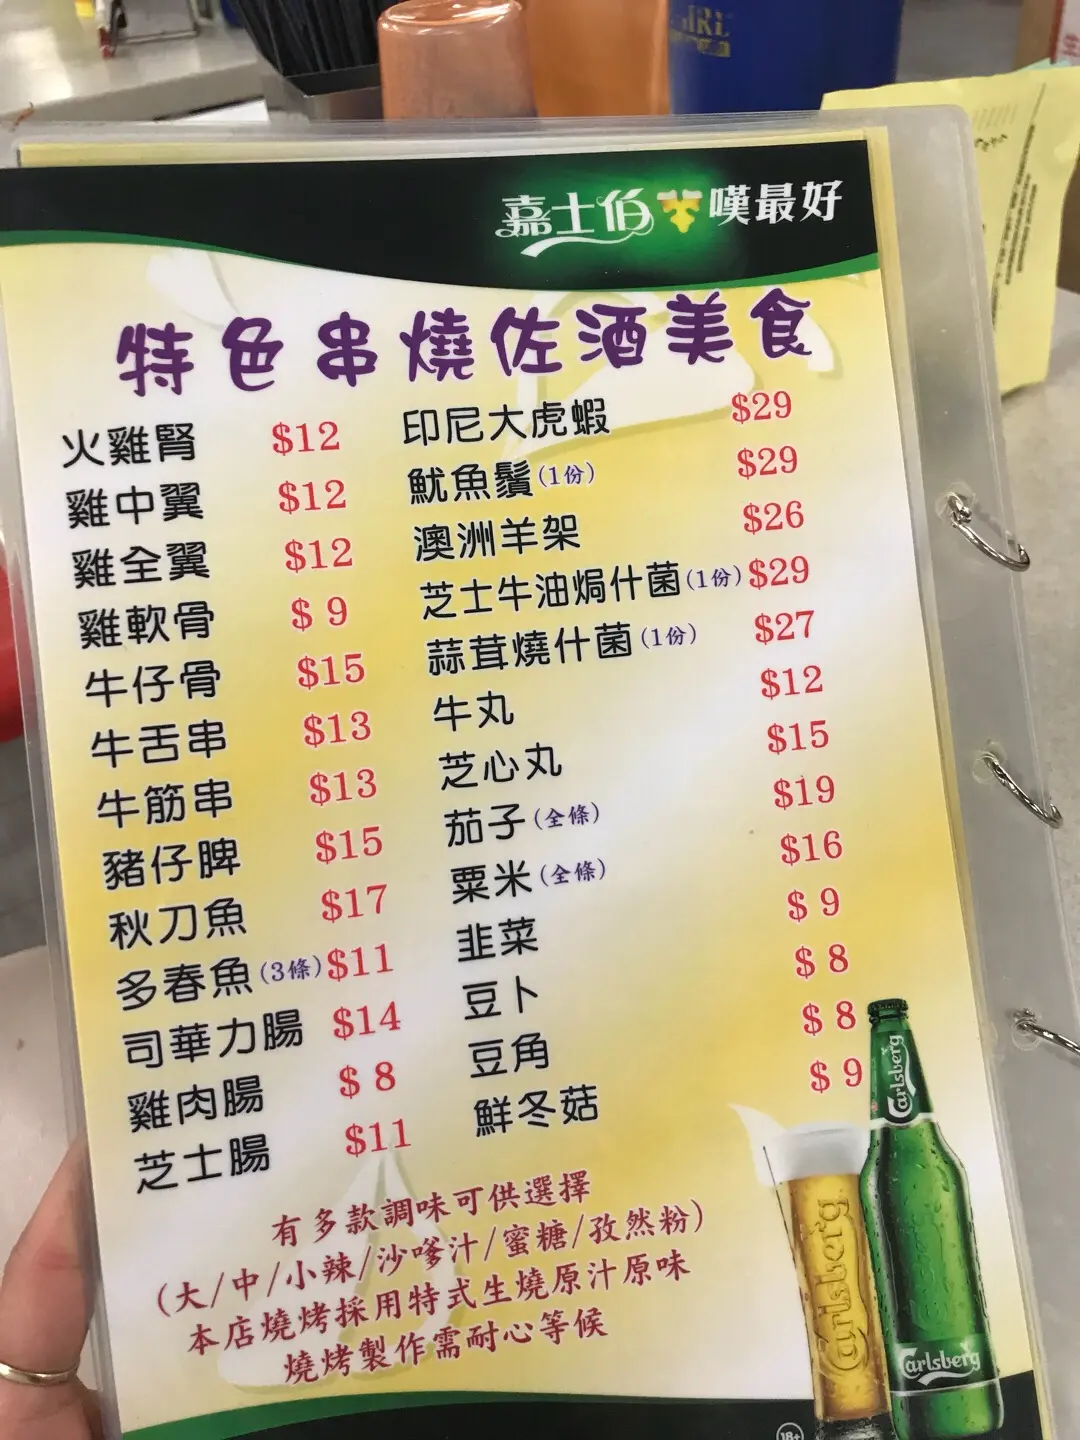 嘉士伯 嘆最好
特色串燒佐酒美食
火雞腎 $12
雞中翼 $12
雞全翼 $12
雞軟骨 $ 9
牛仔骨 $15
牛舌串 $13
牛筋串 $13
豬仔脾 $15
秋刀魚 $17
多春魚(3條) $11
司華力腸 $14
雞肉腸 $ 8
芝士腸 $11
印尼大虎蝦 $29
魷魚鬚(1份) $29
澳洲羊架 $26
芝士牛油焗什菌(1份) $29
蒜茸燒什菌(1份) $27
牛丸 $12
芝心丸 $15
茄子(全條) $19
粟米(全條) $16
韭菜 $ 9
豆卜 $ 8
豆角 $ 8
鮮冬菇 $ 9
有多款調味可供選擇
(大/中/小辣/沙嗲汁/蜜糖/孜然粉)
本店燒烤採用特式生燒原汁原味
燒烤製作需耐心等候
Carlsberg
Carlsberg
Carlsberg
18+